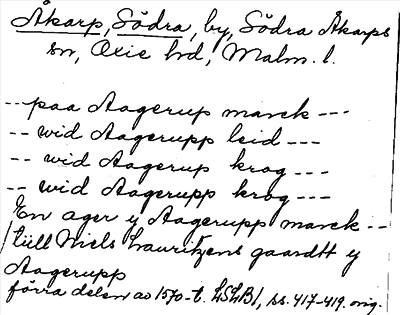 Åkarp, Södra, by, Södra Åkarps
sn, Oxie hd, Malm. l.
--- paa Aagerup marck ---
-- wid Aagerupp leid ---
-- wid Aagerup krog ---
-- wid Aagerupp krog ---
En ager y Aagerupp marck --
till Niels Lauritzens gaardt y
Aagerupp
förra delen av 1570-t. LSLB1, ss. 417-419. orig.